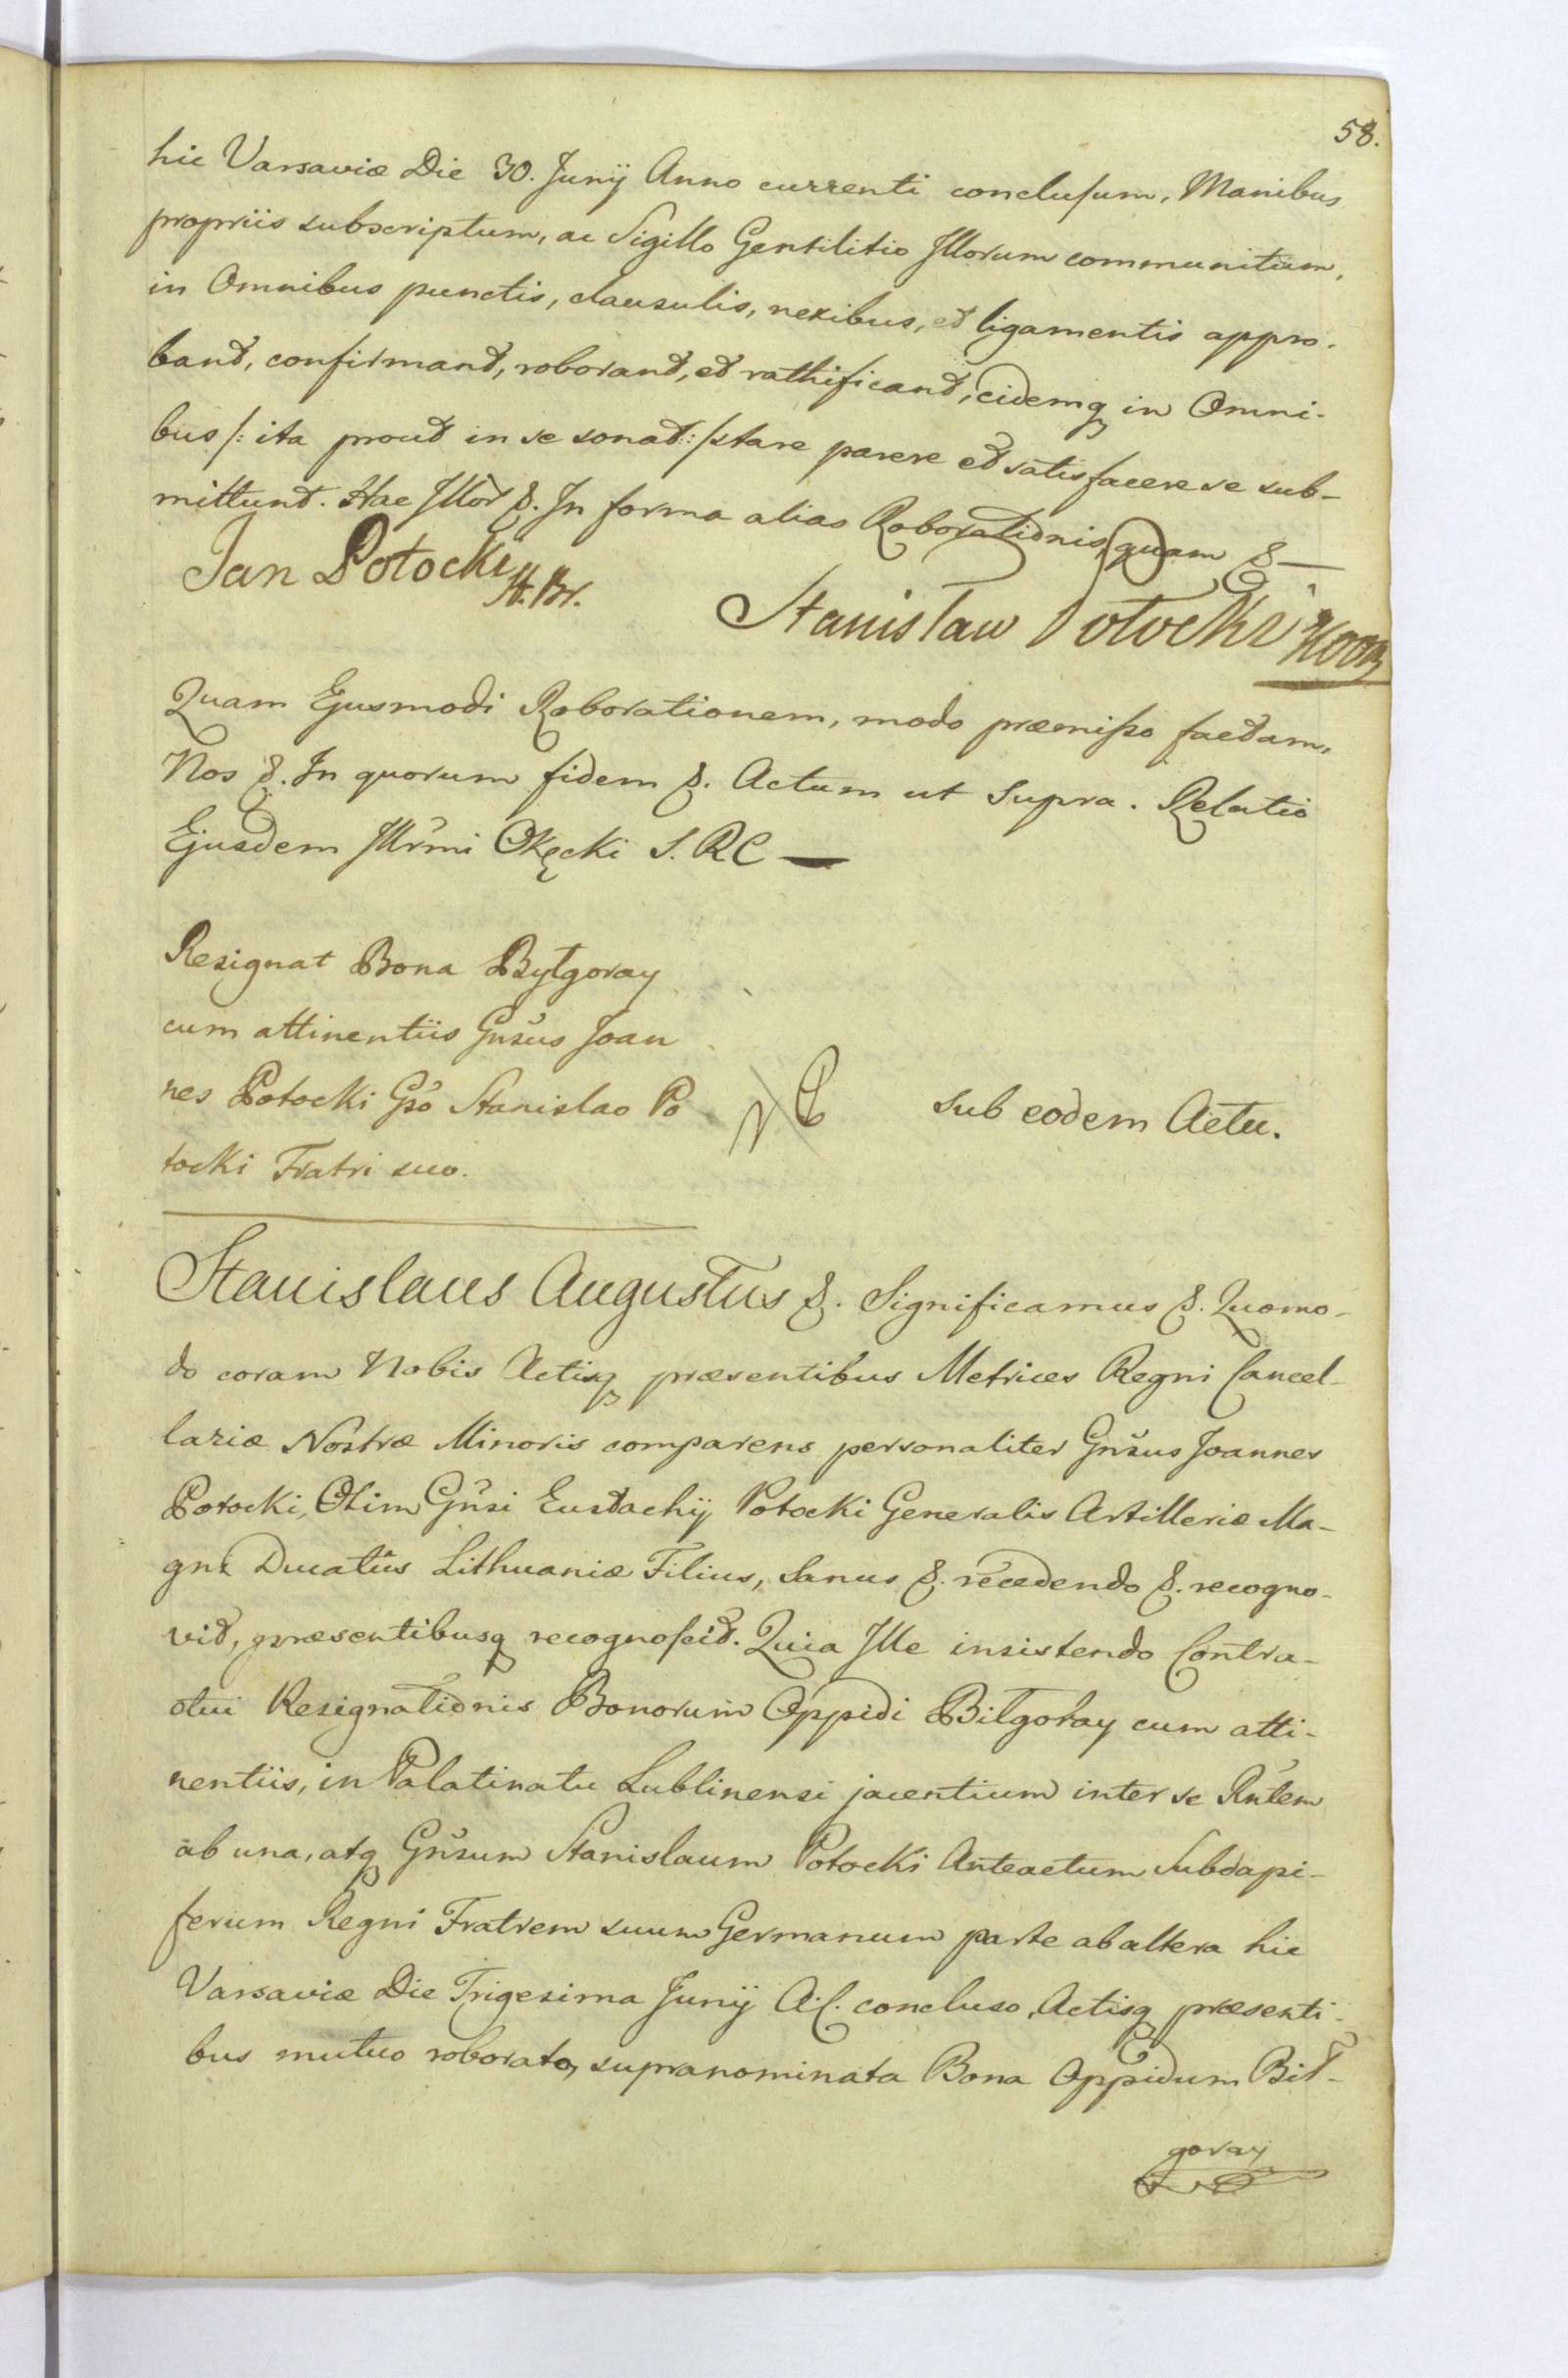 58.
hic Varsaviæ Die 30. Junÿ Anno currenti conclusum, Manibus
propriis subscriptum, ac Sigillo Gentilitio Illorum communitum,
in Omnibus punctis, clausulis, nexibus, et ligamentis appro-
bant, confirmant, roborant, et rathificant, eidemq in Omni-
bus /: ita prout in se sonat :/ stare parere et satisfacere se sub-
mittunt. Hac Illor &. In forma alias Roborationis, quam &
Jan Potocki St. Br.
Stanisław Potocki
Quam Ejusmodi Roborationem, modo præmisso factam,
Nos &. In quorum fidem &. Actum ut Supra. Relatio
Ejusdem Illrmi Okęcki S. R C
Resignat Bona Byłgoray
cum attinentiis Gnsus Joan
nes Potocki Gso Stanislao Po
tocki Fratri suo.
sub eodem Actu.
Stanislaus Augustus &. Significamus &. Quomo-
do coram Nobis Actisq præsentibus Metrices Regni Cancel-
lariæ Nostræ Minoris comparens personaliter Gnsus Joannes
Potocki, Olim Gnsi Eustachÿ Potocki Generalis Artilleriæ Ma-
gni Ducatûs Lithuaniæ Filius, Sanus &. recedendo &. recogno-
vit, præsentibusq recognoscit. Quia Ille insistendo Contra-
ctui Resignationis Bonorum Oppidi Biłgoray cum atti-
nentiis, in Palatinatu Lublinensi jacentium inter se Rntem
ab una, atq Gnsum Stanislaum Potocki Anteactum Subdapi-
ferum Regni Fratrem suum Germanum parte ab altera hic
Varsaviæ Die Trigesima Junÿ A. C. concluso, Actisq præsenti-
bus mutuo roborato, supranominata Bona Oppidum Bił-
goray